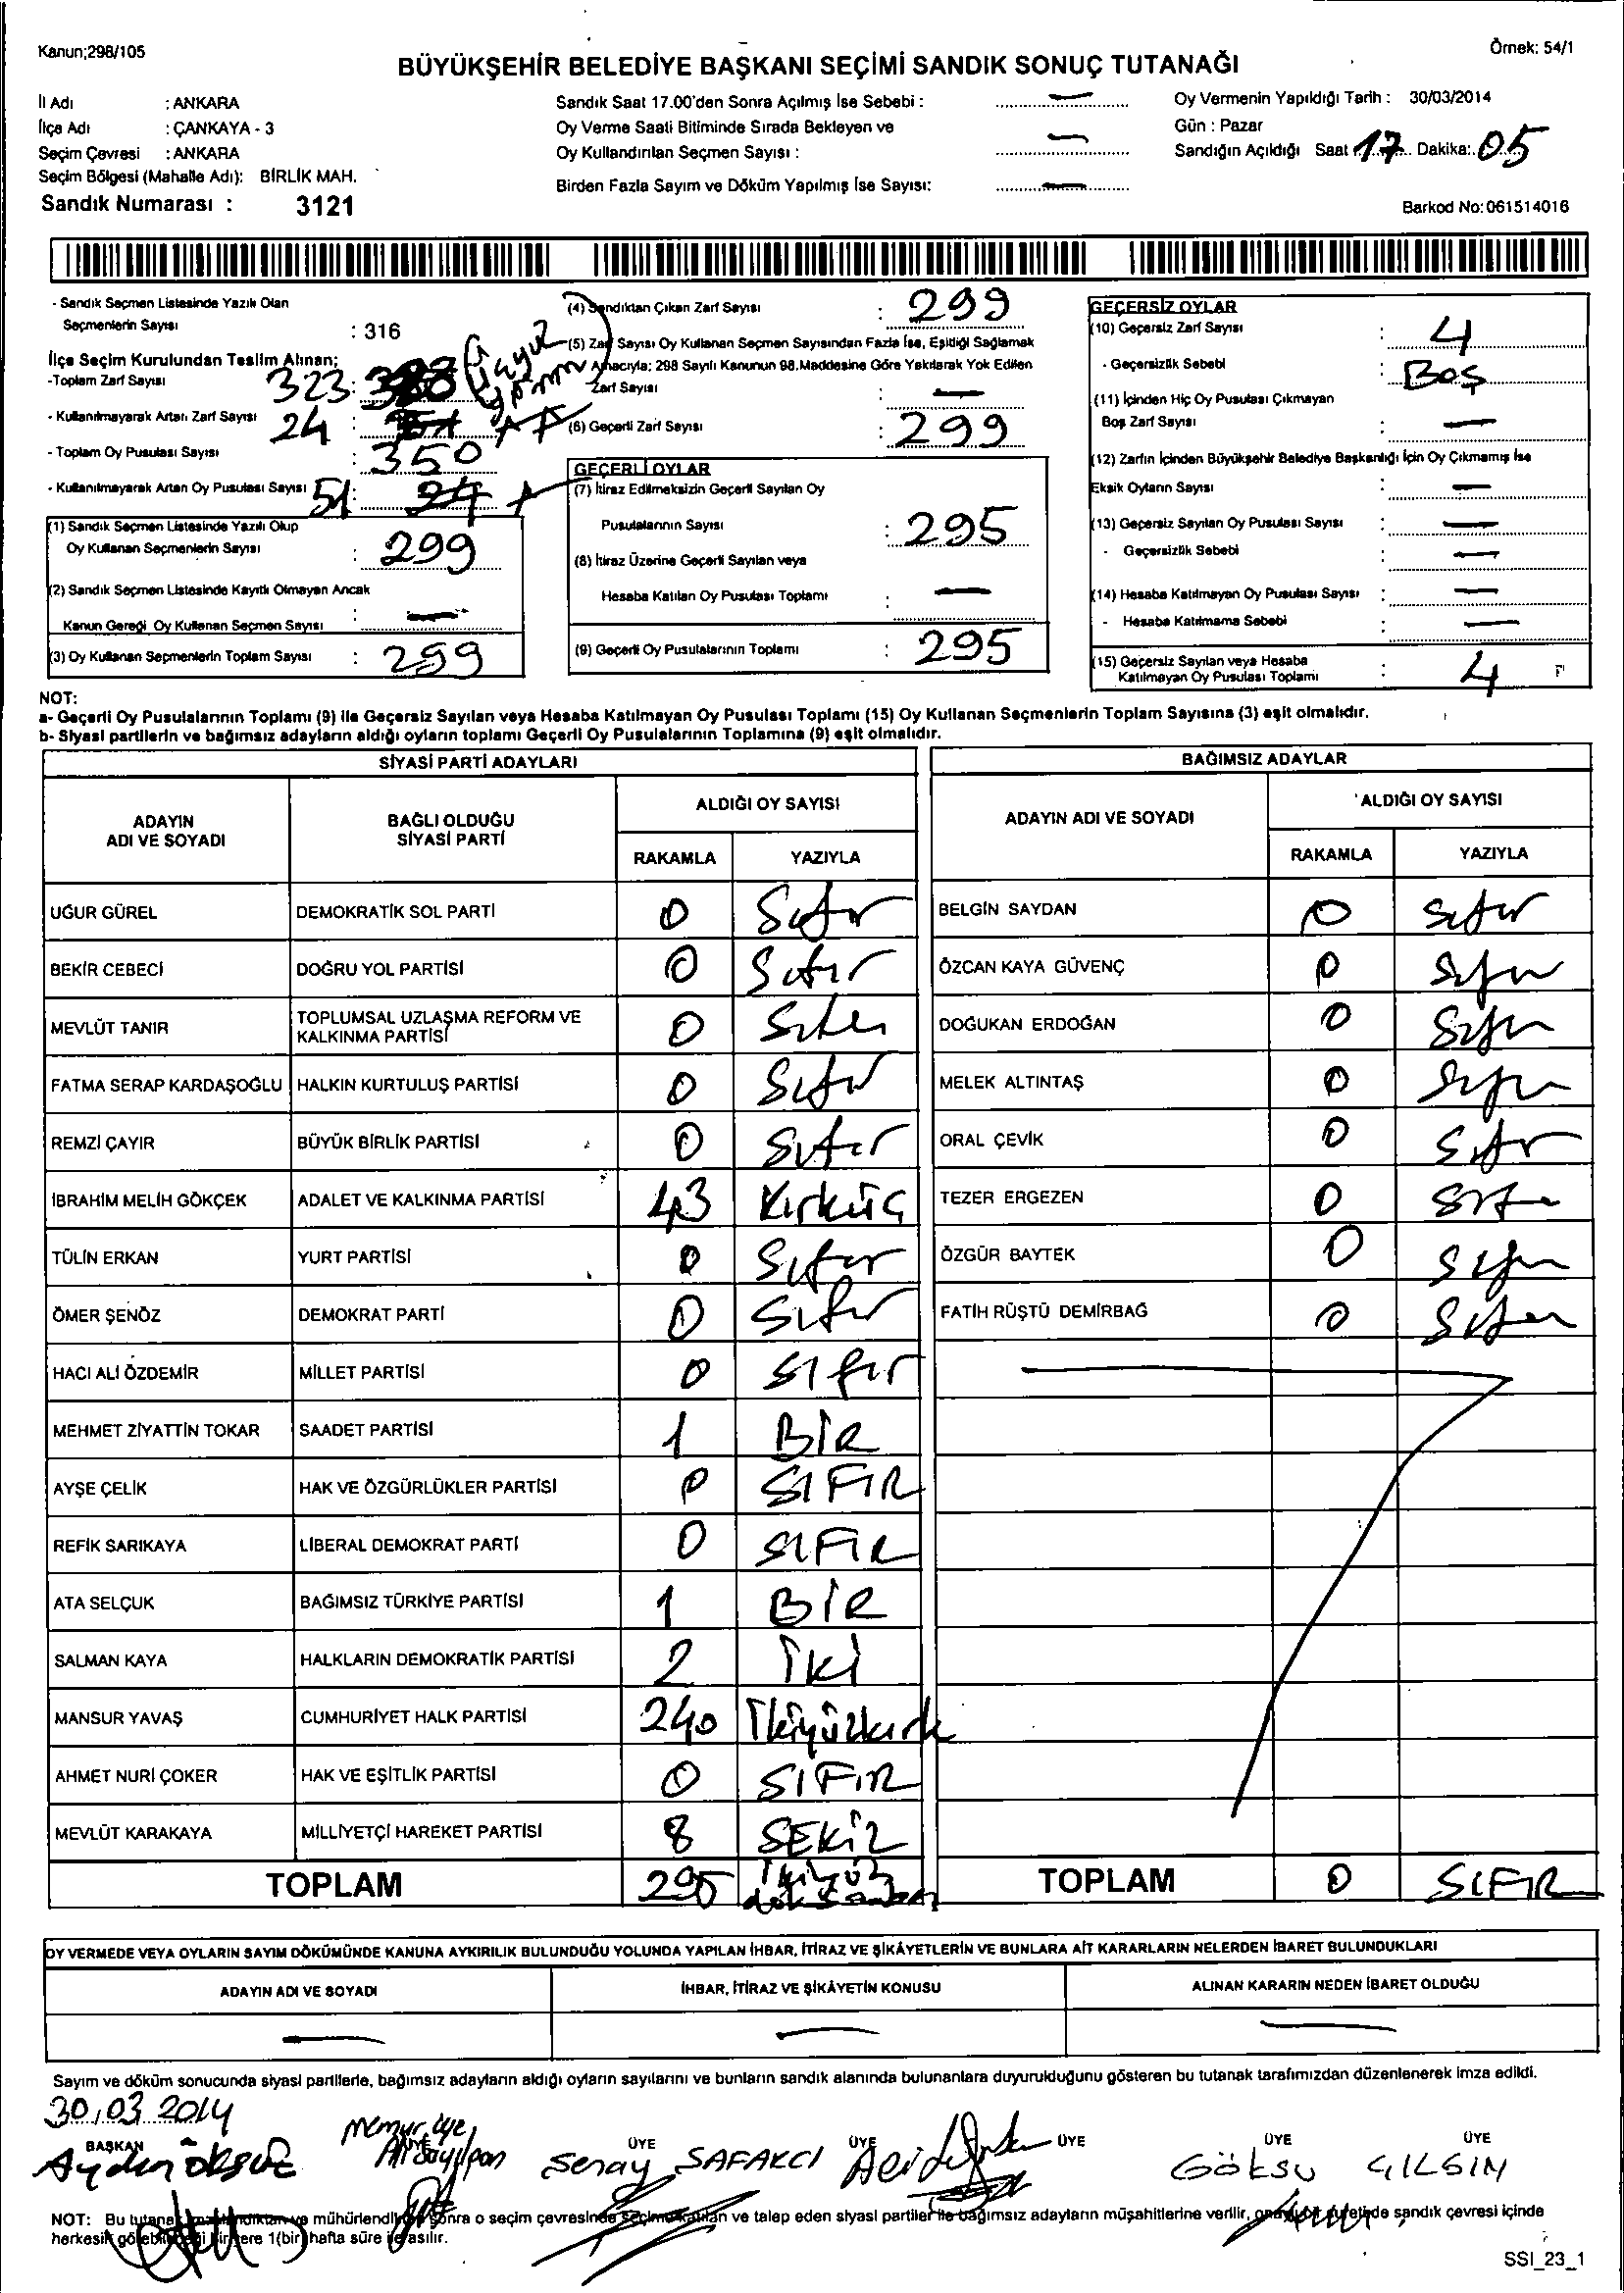 Kanun;298/105
Örnek: 54/1
BÜYÜKŞEHİR BELEDİYE BAŞKANI SEÇİMİ SANDIK SONUÇ TUTANAĞI
İl Adı : ANKARA
İlçe Adı : ÇANKAYA - 3
Seçim Çevresi : ANKARA
Seçim Bölgesi (Mahalle Adı): BİRLİK MAH.
Sandık Numarası : 3121
Sandık Saat 17.00'den Sonra Açılmış İse Sebebi : —
Oy Verme Saati Bitiminde Sırada Bekleyen ve
Oy Kullandırılan Seçmen Sayısı : —
Birden Fazla Sayım ve Döküm Yapılmış İse Sayısı: —
Oy Vermenin Yapıldığı Tarih : 30/03/2014
Gün : Pazar
Sandığın Açıldığı Saat 17 Dakika: 05
Barkod No:061514016
- Sandık Seçmen Listesinde Yazılı Olan
Seçmenlerin Sayısı : 316
İlçe Seçim Kurulundan Teslim Alınan;
-Toplam Zarf Sayısı 323 :
- Kullanılmayarak Artan Zarf Sayısı 24 :
- Toplam Oy Pusulası Sayısı : 350
- Kullanılmayarak Artan Oy Pusulası Sayısı 51 : 24
(1) Sandık Seçmen Listesinde Yazılı Olup
Oy Kullanan Seçmenlerin Sayısı : 299
(2) Sandık Seçmen Listesinde Kayıtlı Olmayan Ancak
Kanun Gereği Oy Kullanan Seçmen Sayısı : —
(3) Oy Kullanan Seçmenlerin Toplam Sayısı : 299
(4) Sandıktan Çıkan Zarf Sayısı : 299
(5) Zarf Sayısı Oy Kullanan Seçmen Sayısından Fazla İse, Eşitliği Sağlamak
Amacıyla; 298 Sayılı Kanunun 98.Maddesine Göre Yakılarak Yok Edilen
Zarf Sayısı : —
(6) Geçerli Zarf Sayısı : 299
GEÇERLİ OYLAR
(7) İtiraz Edilmeksizin Geçerli Sayılan Oy
Pusulalarının Sayısı : 295
(8) İtiraz Üzerine Geçerli Sayılan veya
Hesaba Katılan Oy Pusulası Toplamı : —
(9) Geçerli Oy Pusulalarının Toplamı : 295
GEÇERSİZ OYLAR
(10) Geçersiz Zarf Sayısı : 4
- Geçersizlik Sebebi : Boş
(11) İçinden Hiç Oy Pusulası Çıkmayan
Boş Zarf Sayısı : —
(12) Zarfın İçinden Büyükşehir Belediye Başkanlığı İçin Oy Çıkmamış İse
Eksik Oyların Sayısı : —
(13) Geçersiz Sayılan Oy Pusulası Sayısı : —
- Geçersizlik Sebebi : —
(14) Hesaba Katılmayan Oy Pusulası Sayısı : —
- Hesaba Katılmama Sebebi : —
(15) Geçersiz Sayılan veya Hesaba
Katılmayan Oy Pusulası Toplamı : 4
NOT:
a- Geçerli Oy Pusulalarının Toplamı (9) ile Geçersiz Sayılan veya Hesaba Katılmayan Oy Pusulası Toplamı (15) Oy Kullanan Seçmenlerin Toplam Sayısına (3) eşit olmalıdır.
b- Siyasi partilerin ve bağımsız adayların aldığı oyların toplamı Geçerli Oy Pusulalarının Toplamına (9) eşit olmalıdır.
SİYASİ PARTİ ADAYLARI
ADAYIN ADI VE SOYADI BAĞLI OLDUĞU SİYASİ PARTİ ALDIĞI OY SAYISI
RAKAMLA YAZIYLA
UĞUR GÜREL DEMOKRATİK SOL PARTİ 0 Sıfır
BEKİR CEBECİ DOĞRU YOL PARTİSİ 0 Sıfır
MEVLÜT TANIR TOPLUMSAL UZLAŞMA REFORM VE KALKINMA PARTİSİ 0 Sıfır
FATMA SERAP KARDAŞOĞLU HALKIN KURTULUŞ PARTİSİ 0 Sıfır
REMZİ ÇAYIR BÜYÜK BİRLİK PARTİSİ 0 Sıfır
İBRAHİM MELİH GÖKÇEK ADALET VE KALKINMA PARTİSİ 43 Kırküç
TÜLİN ERKAN YURT PARTİSİ 0 Sıfır
ÖMER ŞENÖZ DEMOKRAT PARTİ 0 Sıfır
HACI ALİ ÖZDEMİR MİLLET PARTİSİ 0 Sıfır
MEHMET ZİYATTİN TOKAR SAADET PARTİSİ 1 BİR
AYŞE ÇELİK HAK VE ÖZGÜRLÜKLER PARTİSİ 0 SIFIR
REFİK SARIKAYA LİBERAL DEMOKRAT PARTİ 0 SIFIR
ATA SELÇUK BAĞIMSIZ TÜRKİYE PARTİSİ 1 BİR
SALMAN KAYA HALKLARIN DEMOKRATİK PARTİSİ 2 İki
MANSUR YAVAŞ CUMHURİYET HALK PARTİSİ 240 İkiyüzkırk
AHMET NURİ ÇOKER HAK VE EŞİTLİK PARTİSİ 0 SIFIR
MEVLÜT KARAKAYA MİLLİYETÇİ HAREKET PARTİSİ 8 SEKİZ
TOPLAM 295 İkiyüz doksanbeş
BAĞIMSIZ ADAYLAR
ADAYIN ADI VE SOYADI ALDIĞI OY SAYISI
RAKAMLA YAZIYLA
BELGİN SAYDAN 0 Sıfır
ÖZCAN KAYA GÜVENÇ 0 Sıfır
DOĞUKAN ERDOĞAN 0 Sıfır
MELEK ALTINTAŞ 0 Sıfır
ORAL ÇEVİK 0 Sıfır
TEZER ERGEZEN 0 Sıfır
ÖZGÜR BAYTEK 0 Sıfır
FATİH RÜŞTÜ DEMİRBAĞ 0 Sıfır
TOPLAM 0 SIFIR
OY VERMEDE VEYA OYLARIN SAYIM DÖKÜMÜNDE KANUNA AYKIRILIK BULUNDUĞU YOLUNDA YAPILAN İHBAR, İTİRAZ VE ŞİKÂYETLERİN VE BUNLARA AİT KARARLARIN NELERDEN İBARET BULUNDUKLARI
ADAYIN ADI VE SOYADI İHBAR, İTİRAZ VE ŞİKÂYETİN KONUSU ALINAN KARARIN NEDEN İBARET OLDUĞU
— — —
Sayım ve döküm sonucunda siyasi partilerle, bağımsız adayların aldığı oyların sayılarını ve bunların sandık alanında bulunanlara duyurulduğunu gösteren bu tutanak tarafımızdan düzenlenerek imza edildi.
30.03.2014
BAŞKAN ÜYE ÜYE ÜYE ÜYE ÜYE ÜYE
Memur üye
Aydın Öksüz Seray SAFAKCI Göksu ÇILGIN
NOT: Bu tutanak imzalandıktan ve mühürlendikten sonra o seçim çevresinde seçime katılan ve talep eden siyasi partiler ile bağımsız adayların müşahitlerine verilir, onaylı bir suretide sandık çevresi içinde
herkesin görebileceği bir yere 1(bir) hafta süre ile asılır.
SSI_23_1